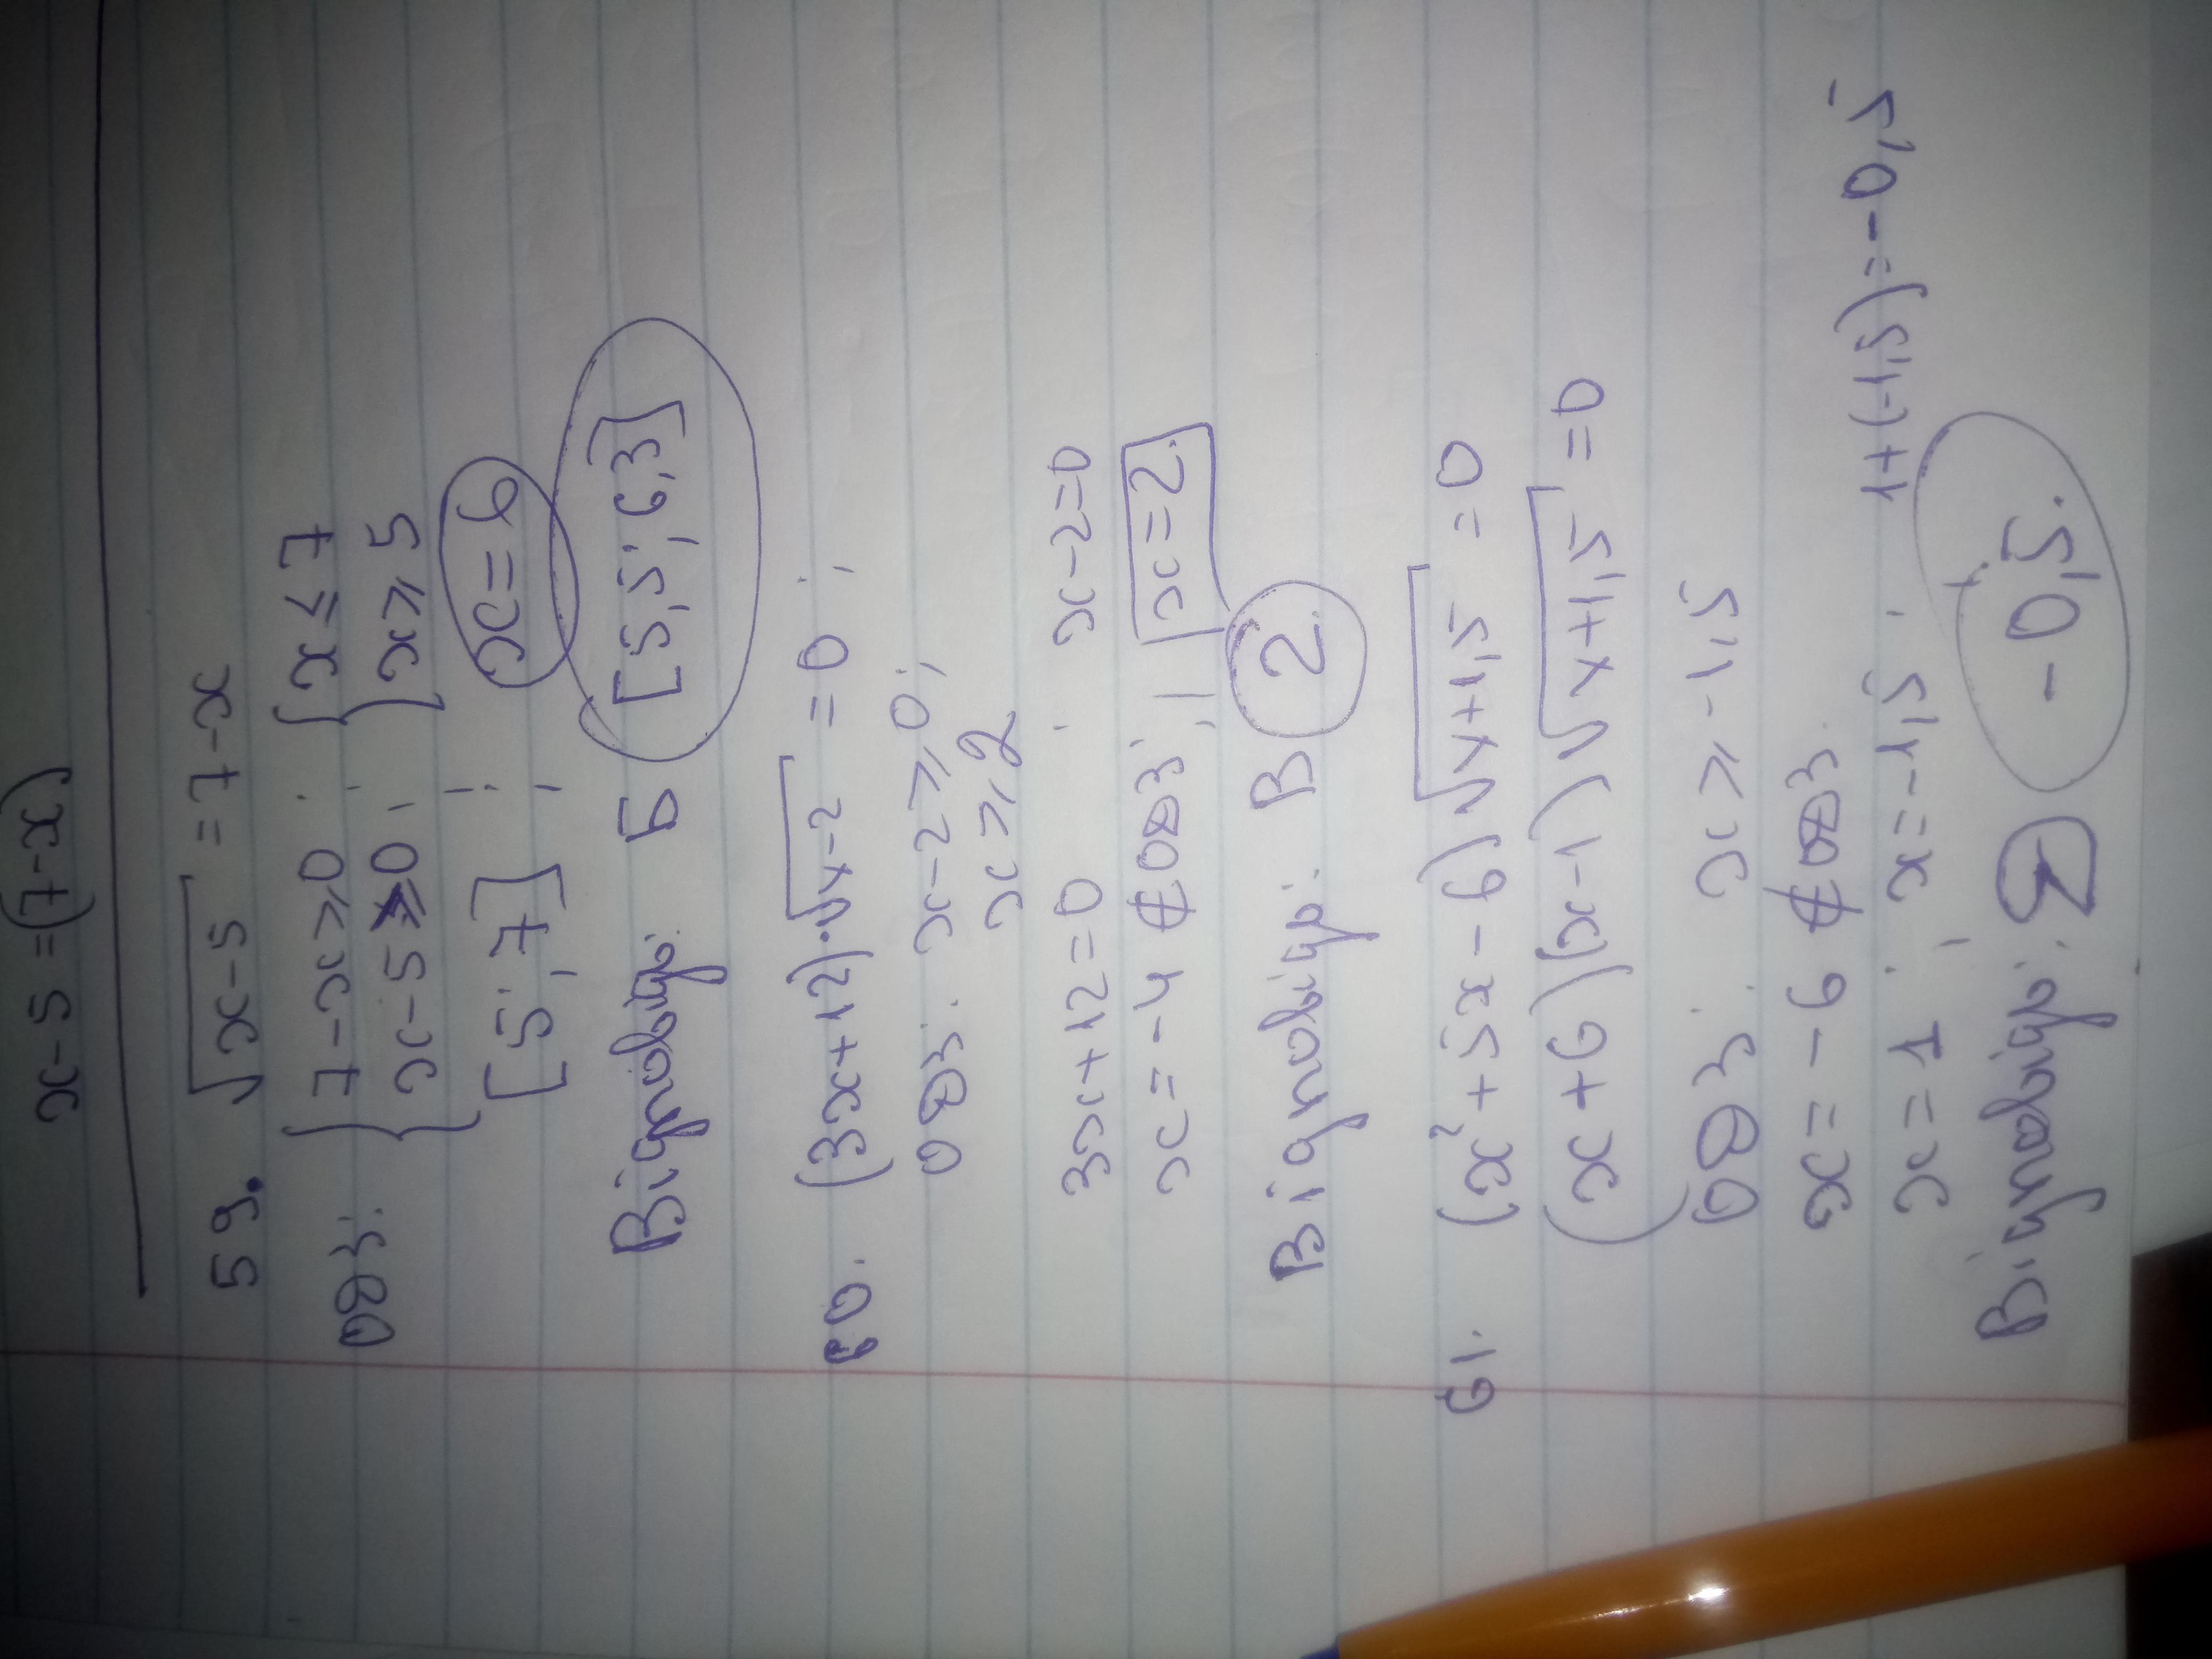 x-5=(7-x)
59. √x-5 = 7-x
ОДЗ: { 7-x⩾0 ; { x ≤ 7
{ x-5⩾0 ; { x⩾5
[5;7] ; x=6
Відповідь: Б [5,5; 6,3]
60. (3x+12)·√x-2 = 0 ;
ОДЗ: x-2⩾0;
x⩾2
3x+12=0 ; x-2=0
x=-4 ∉ ОДЗ ; x=2.
Відповідь: В 2.
61. (x²+5x-6)√x+1,5 = 0
(x+6)(x-1)√x+1,5 =0
ОДЗ: x⩾-1,5
x=-6 ∉ ОДЗ
x=1 ; x=-1,5 ; 1+(-1,5)=-0,5
Відповідь: -0,5.